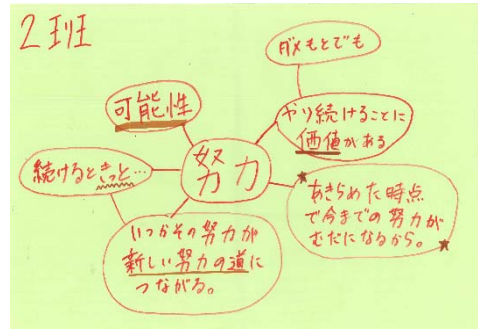 2班
ダメもとでも
可能性
やり続けることに
価値がある
努力
続けるときっと…
あきらめた時点
で今までの努力が
むだになるから。
いつかその努力が
新しい努力の道に
つながる。